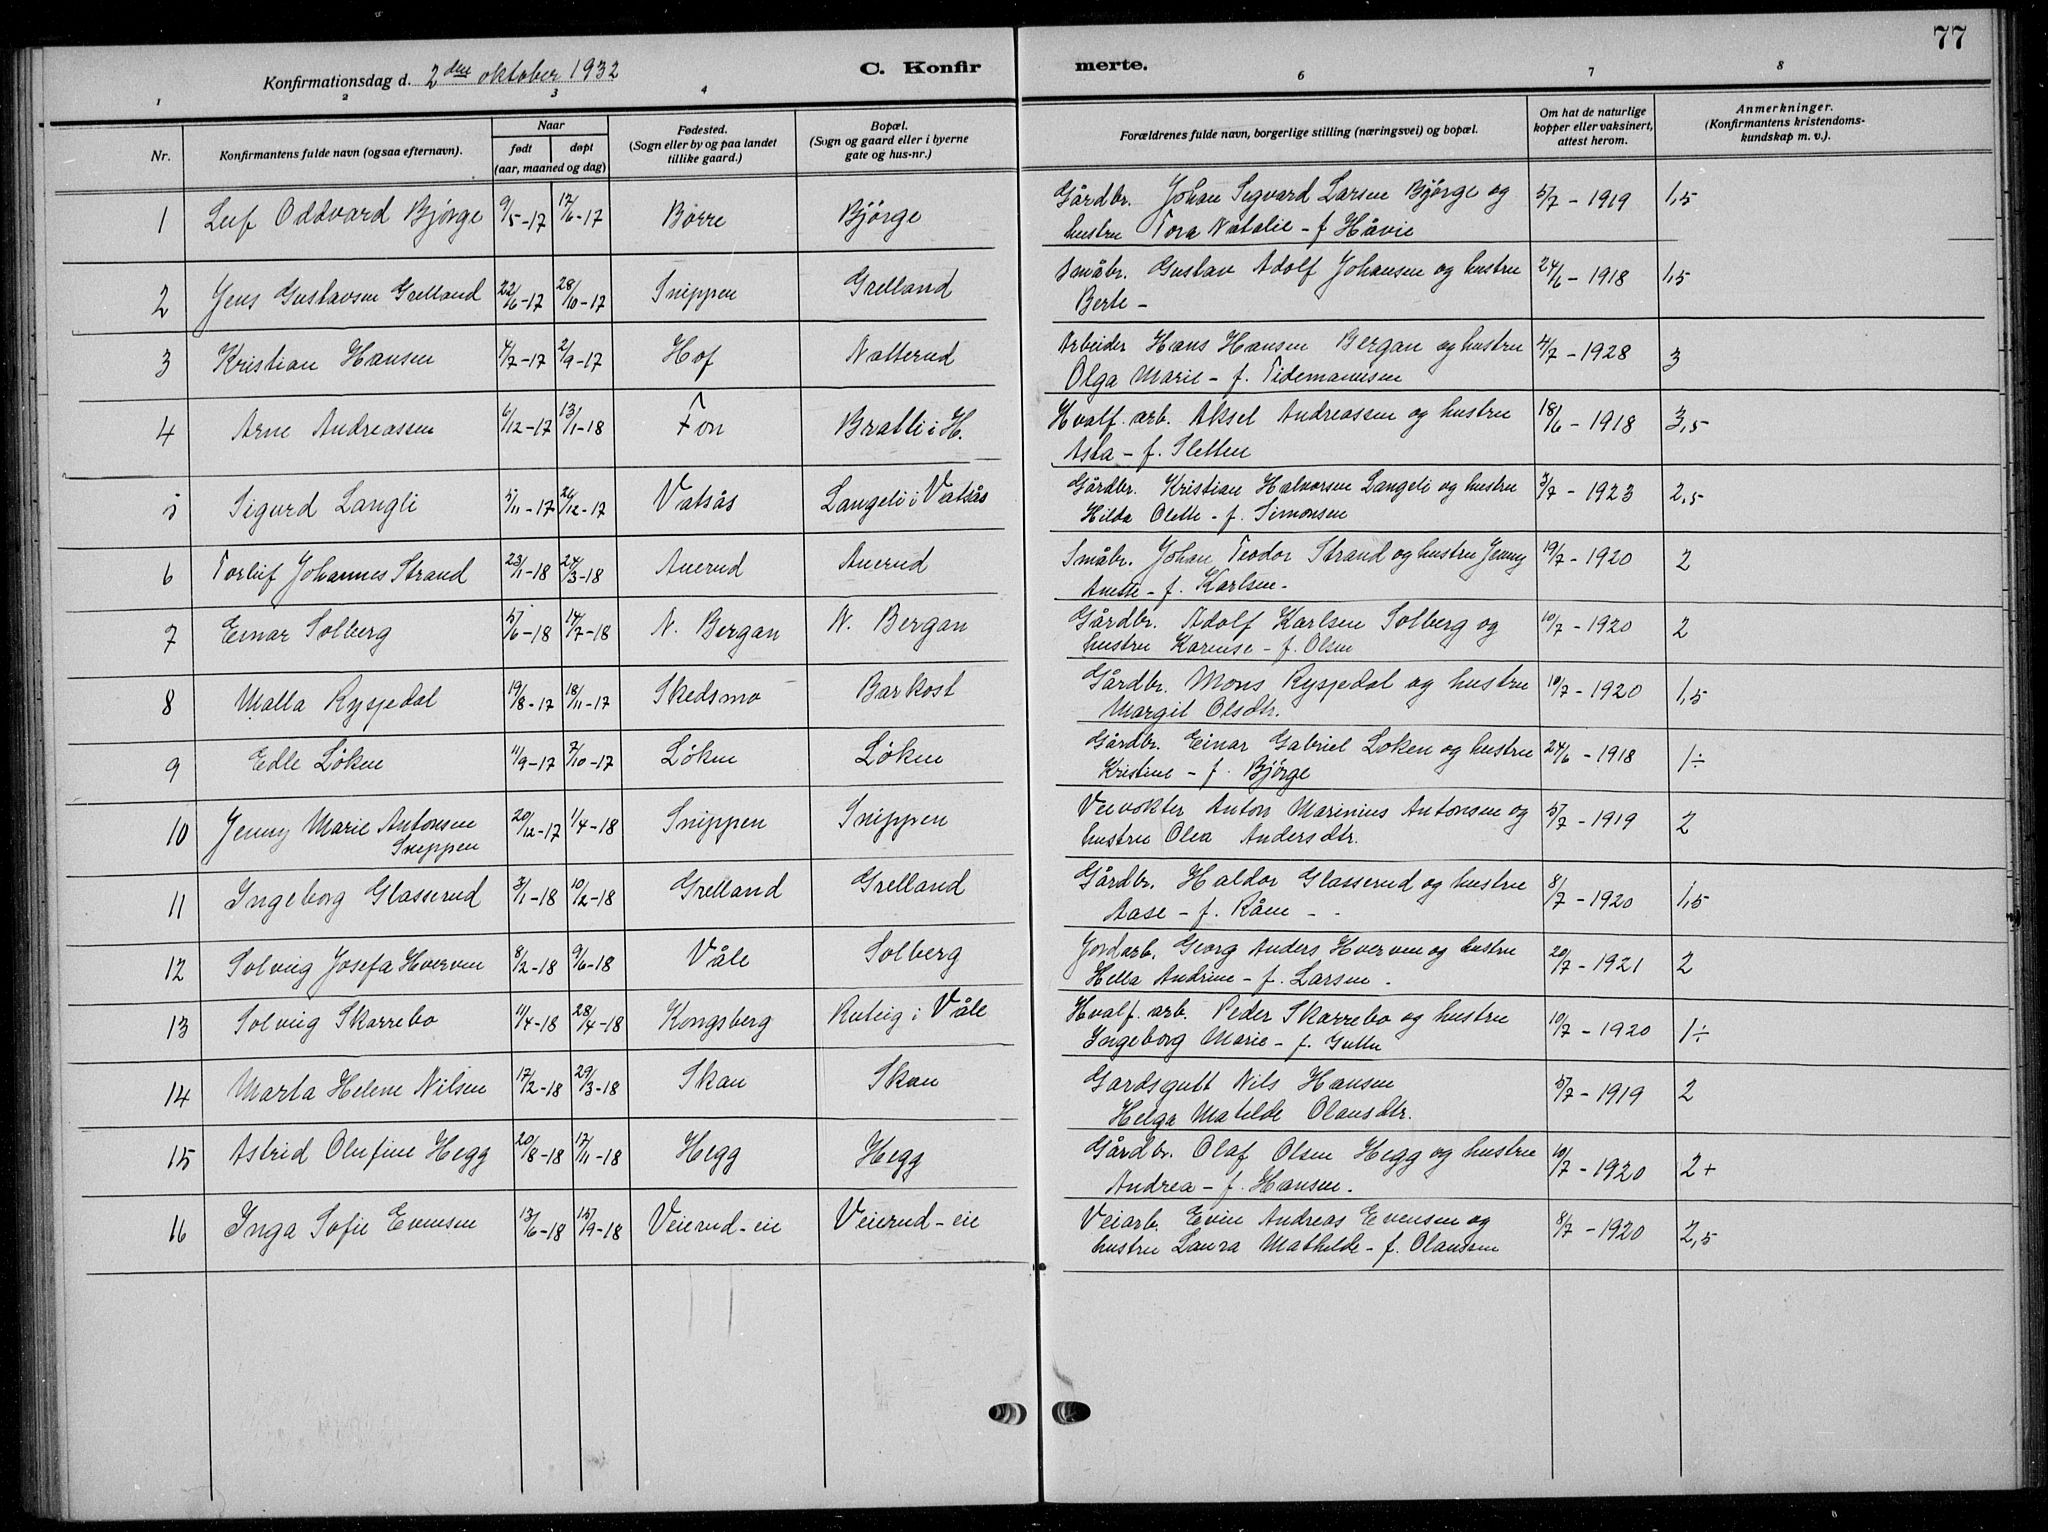 77
Konfirmationsdag d. 2den oktober 1932
C. Konfirmerte.
1 2 3 4 6 7 8
Nr.
Konfirmantens fulde navn (ogsaa efternavn).
Naar
født døpt
(aar, maaned og dag)
Fødested.
(Sogn eller by og paa landet
tillike gaard.)
Bopæl.
(Sogn og gaard eller i byerne
gate og hus-nr.)
Forældrenes fulde navn, borgerlige stilling (næringsvei) og bopæl.
Om hat de naturlige
kopper eller vaksinert,
attest herom.
Anmerkninger.
(Konfirmantens kristendoms-
kundskap m. v.).
1 Leif Oddvard Bjørge 9/5-17 17/6-17 Borre Bjørge Gårdbr. Johan Sigvard Larsen Bjørge og 5/7 - 1919 1,5
hustru Tora Natalie - f Håvie
2 Jens Gustavsen Grelland 22/6-17 28/10-17 Snippen Grelland Småbr. Gustav Adolf Johansen og hustru 24/6 - 1918 1,5
Berte -
3 Kristian Hansen 4/7-17 2/9-17 Hof Natterud Arbeider Hans Hansen Bergan og hustru 4/7 - 1928 3
Olga Marie - f. Tidemannsen
4 Arne Andreassen 6/12-17 13/1-18 Fon Bratli i H. Hvalf. arb. Aksel Andreassen og hustru 18/6 - 1918 3,5
Asta - f. Sletten
5 Sigurd Langli 5/11-17 26/12-17 Vatsås Langeli i Vatsås Gårdbr. Kristian Halvorsen Langeli og hustru 3/7 - 1923 2,5
Hilda Olette - f. Simonsen
6 Torleif Johannes Strand 23/1-18 24/3-18 Auerud Auerud Småbr. Johan Teodor Strand og hustru Jenny 19/7 - 1920 2
Anette - f. Karlsen -
7 Einar Solberg 5/6-18 14/7-18 N. Bergan N. Bergan Gårdbr. Adolf Karlsen Solberg og 10/7 - 1920 2
hustru Karense - f. Olsen
8 Malla Rysjedal 19/8-17 18/11-17 Skedsmo Barkost Gårdbr. Mons Rysjedal og hustru 10/7 - 1920 1,5
Margit Olsdtr.
9 Edle Løken 11/9-17 7/10-17 Løken Løken Gårdbr. Einar Gabriel Løken og hustru 24/6 - 1918 1÷
Kristine - f. Bjørge
10 Jenny Marie Antonsen 20/12-17 1/4-18 Snippen Snippen Veivokter Anton Marinius Antonsen og 5/7 - 1919 2
Snippen hustru Olea Andersdtr.
11 Ingeborg Glasserud 3/1-18 10/2-18 Grelland Grelland Gårdbr. Haldor Glasserud og hustru 8/7 - 1920 1,5
Aase - f. Råen - -
12 Solveig Josefa Hverven 8/2-18 9/6-18 Våle Solberg Jordarb. Georg Anders Hverven og hustru 20/7 - 1921 2
Hella Andrine - f. Larsen.
13 Solveig Skarrebo 11/4-18 28/4-18 Kongsberg Rutvig i Våle Hvalf. arb. Peder Skarrebo og hustru 10/7 - 1920 1÷
Ingeborg Marie - f. Gutu
14 Marta Helene Nilsen 17/2-18 29/3-18 Skau Skau Gardsgutt Nils Hansen 5/7 - 1919 2
Helga Matilde Olausdtr.
15 Astrid Olufine Hegg 20/8-18 17/11-18 Hegg Hegg Gårdbr. Olaf Olsen Hegg og hustru 10/7 - 1920 2+
Andrea - f. Hansen.
16 Inga Sofie Evensen 13/6-18 15/9-18 Veierud-eie Veierud-eie Veiarb. Even Andreas Evensen og 8/7 - 1920 2,5
hustru Laura Mathilde - f. Olaussen